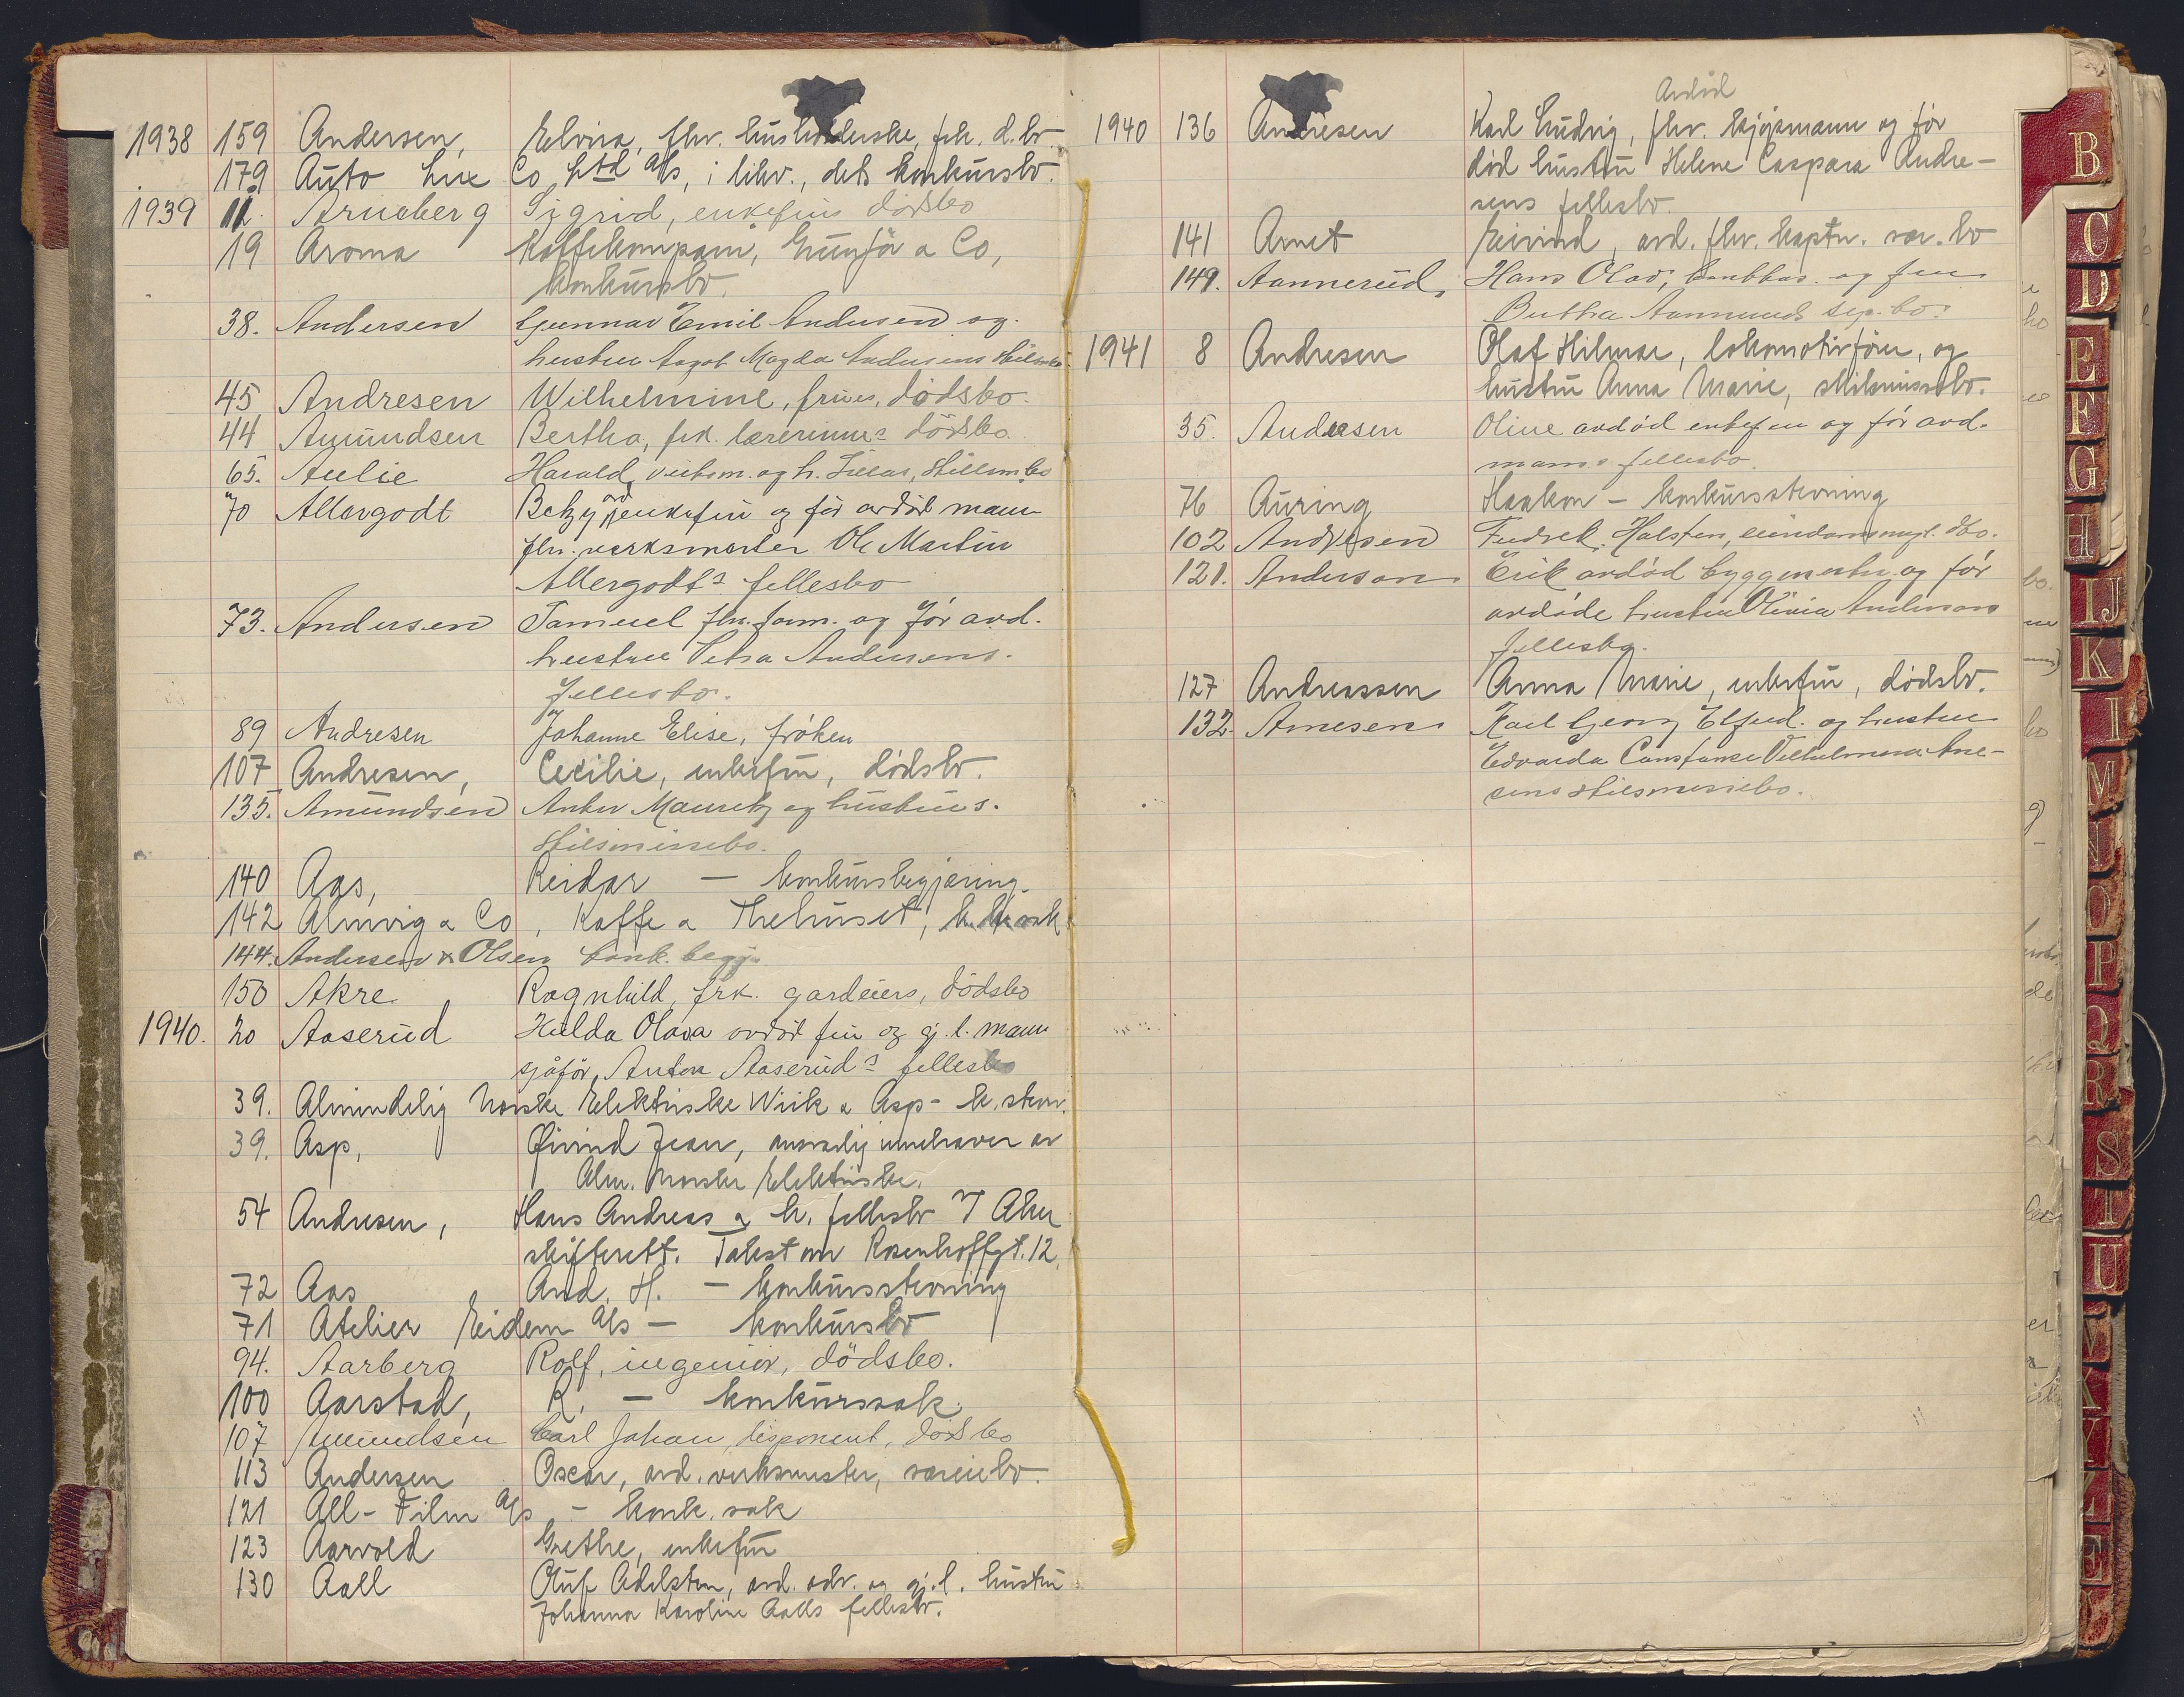 1938 159 Andersen, Elvira, fhv. husholderske, frk. d.bo
179 Auto Lux Co Ltd A/s, i likv., dets konkursbo.
1939 11. Arneberg Sigrid, enkefru dödsbo
19 Aroma Kaffekompani, Gunför & Co,
konkursbo.
38. Andersen Gunnar Emil Andersen og
hustru Aagot Magda Andersens skilsm.bo
45 Andresen Wilhelmine, frues, dödsbo.
44 Amundsen Bertha, frk. lærerinnes dödsbo.
65. Aulie Harald, verksm. og h. skilsm.bo
70 Allergodt Betzy, enkefru og før avdöd mann
fhv. verksmester Ole Martin
Allergodts fellesbo
73. Andersen Samuel fhv. form. og før avd.
hustru Petra Andersens
fellesbo.
89 Andresen Johanne Elise, fröken
107 Andresen, Cecilie, enkefru, dödsbo.
135. Amundsen Anker Mauritz og hustrus.
skilsmissebo.
140 Aas, Reidar — konkursbegjæring.
142 Almvig & Co, Kaffe & Thehuset,
144. Andersen & Olsen konk. begj.
150 Akre Ragnhild, frk. gardeiers, dödsbo
1940. 20 Aaserud Hulda Olava avdöd fru og gj.l. mann
sjåför, Anton Aaseruds fellesbo
39. Almindelig Norske Elektriske Wiik & Asp - k. stevn.
39. Asp, Øivind Jean, ansvarlig innehaver av
Alm. Norske Elektriske.
54 Andresen, Hans Andreas & h. fellesbo I Aker
skifterett. Takst om Rosenhoffgt. 12.
72 Aas And. H. — konkursstevning
71 Atelier Eidem A/s — konkursbo
94. Aarberg Rolf, ingeniör, dödsbo.
100 Aarstad, R. — konkurssak.
107 Amundsen Carl Johan, disponent, dödsbo
113 Andersen Oscar, avd. verksmester, særeiebo.
121 All-Film A/s - konk. sak
123 Aarvold Grethe, enkefru
130 Aall Oluf Adelsten, avd. adv. og gj.l. hustru
Johanna Karoline Aalls fellesbo.
Avdöd
1940 136 Andresen Karl Ludvig, fhv. kjøpmann og før
död hustru Helene Caspara Andre-
sens fellesbo.
141 Arnet Eivind, avd. fhv. kaptn. sær.bo
149. Aannerud, Hans Olav, bankkas. og fru
Bertha Aanneruds sep. bo.
1941 8 Andresen Olaf Hilmar, lokomotivfører, og
hustru Anna Marie, skilsmissebo.
35. Andresen Oline avdöd enkefru og før avd.
manns fellesbo.
76 Auring Haakon - konkursstevning
102 Andresen Fredrik Halsten, eiendomsmegl. dbo.
121. Anderson Erik avdöd byggmester og før
avdöde hustru Olivia Andersons
fellesbo.
127 Andreassen Anna Marie, enkefru, dödsbo.
132. Arnesen Karl Georg Elfred. og hustru
Edvarda Constanse Vilhelmina Arne-
sens skilsmissebo.
B
C
D
E
F
G
H
IJ
K
L
M
N
O
P
Q
R
S
T
U
V
X
Y
Z
Æ
Ø